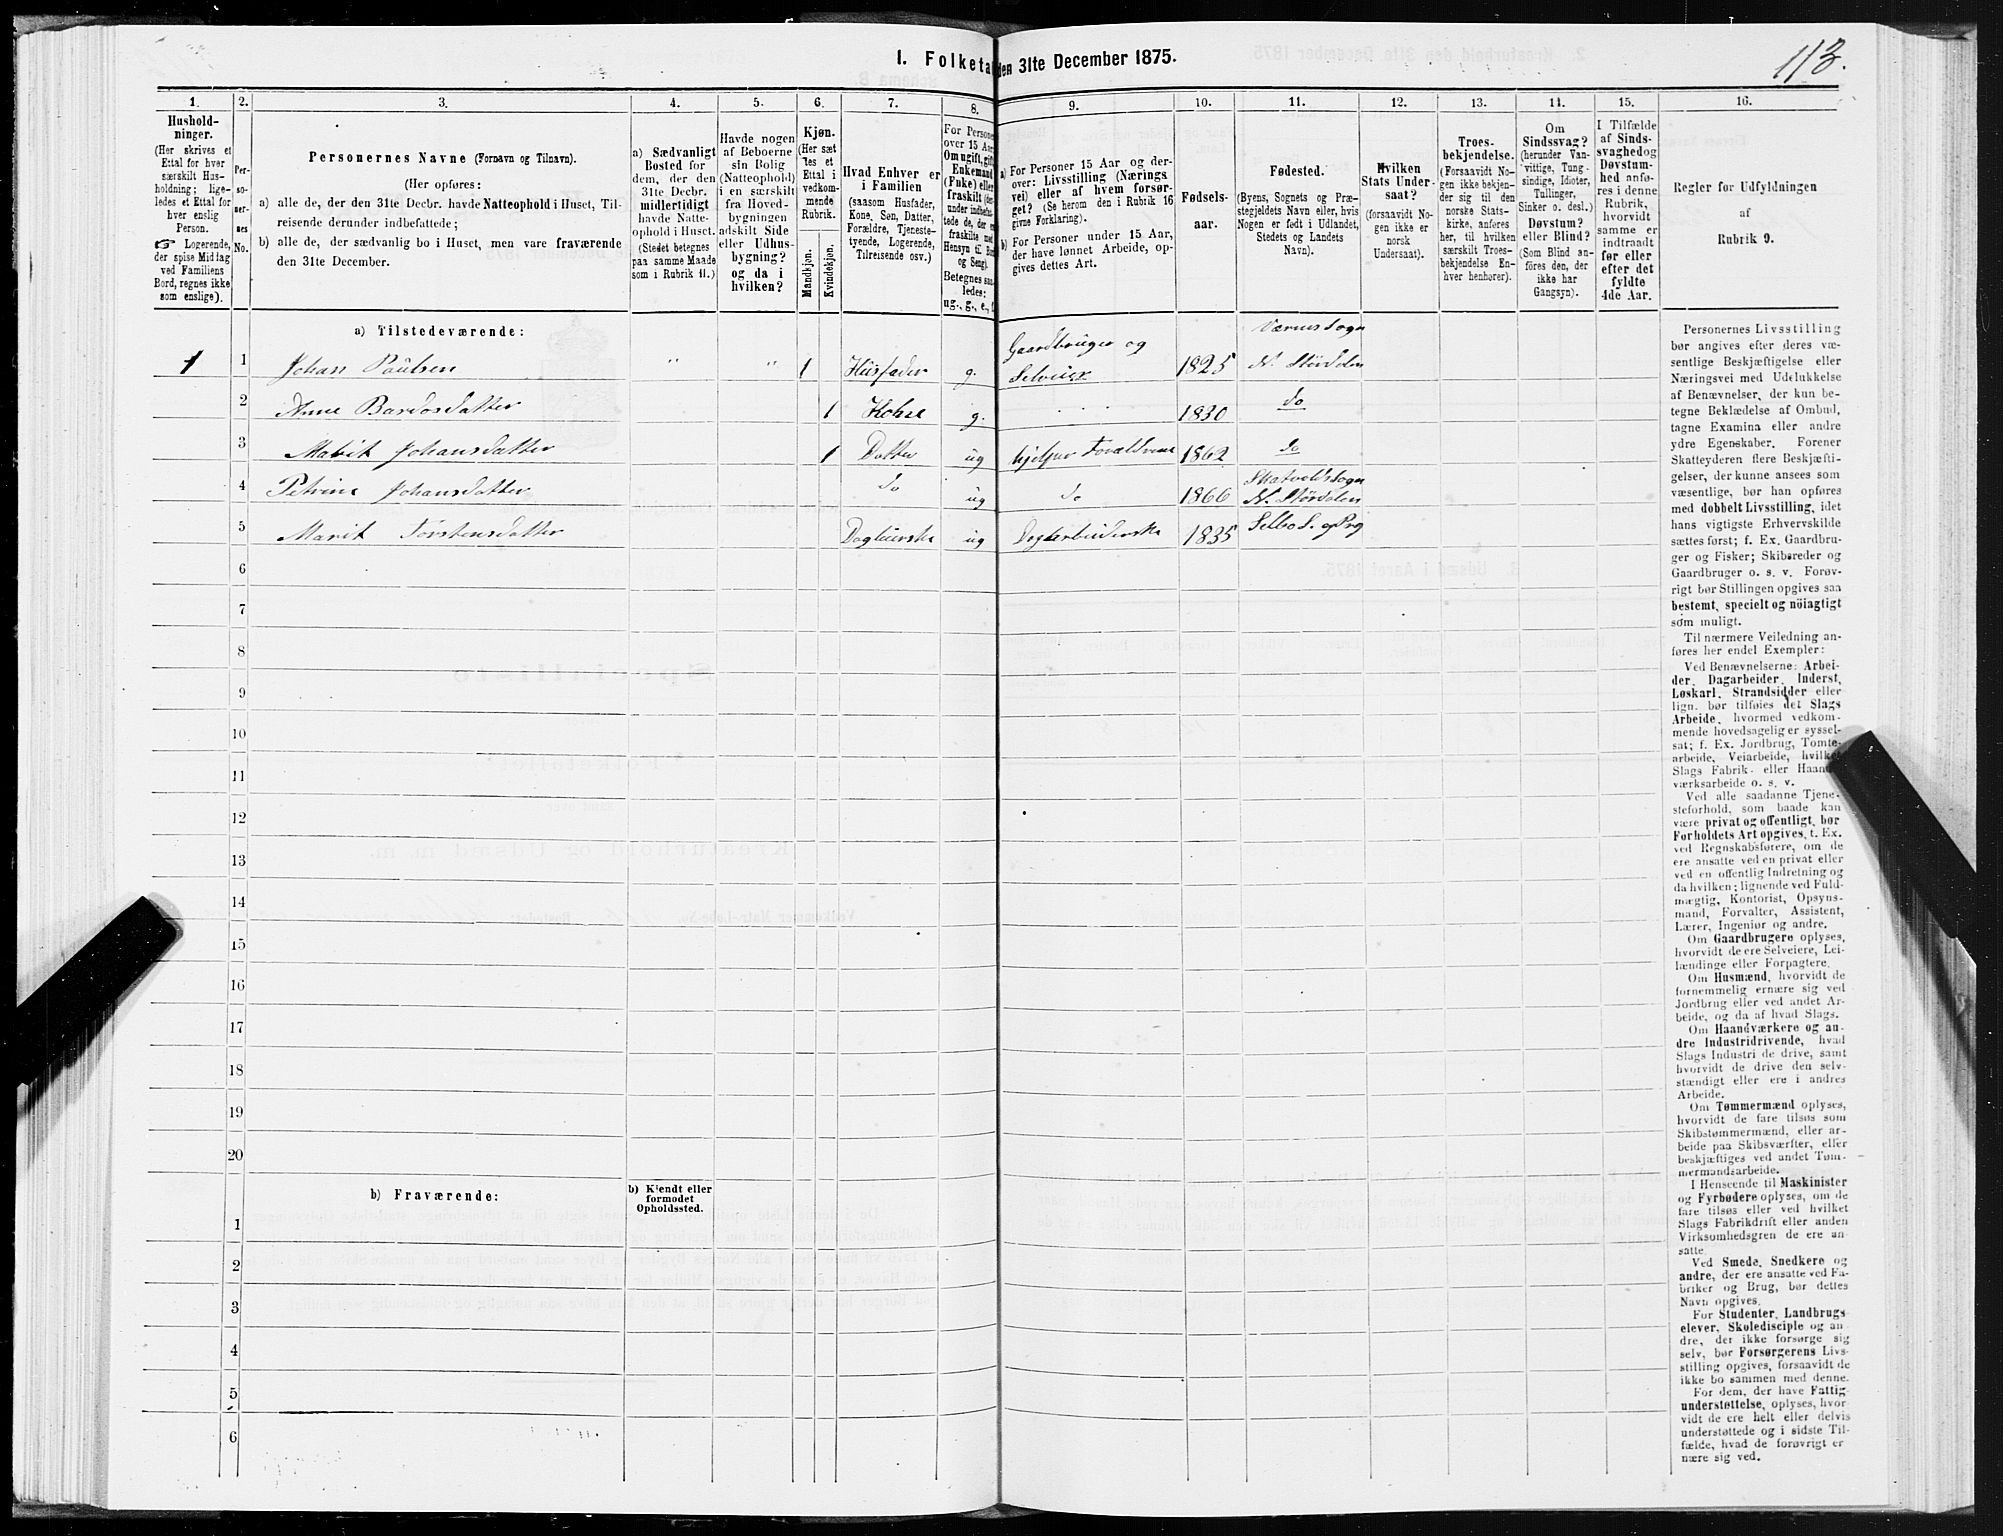 I. Folketal den 31te December 1875.
113.
1.
Hushold-
ninger.
(Her skrives et
Ettal for hver
særskilt Hus-
holdning; lige-
ledes et Ettal for
hver enslig
Person.
☞ Logerende,
der spise Middag
ved Familiens
Bord, regnes ikke
som enslige).
2.
Per-
so-
ner-
nes
No.
3.
Personernes Navne (Fornavn og Tilnavn).
(Her opføres:
a) alle de, der den 31te Decbr. havde Natteophold i Huset, Til-
reisende derunder indbefattede;
b) alle de, der sædvanlig bo i Huset, men vare fraværende
den 31te December.
4.
a) Sædvanligt
Bosted for
dem, der den
31te Decbr.
midlertidigt
havde Natte-
ophold i Huset.
(Stedet betegnes
paa samme Maade
som i Rubrik 11.)
5.
Havde nogen
af Beboerne
sin Bolig
(Natteophold)
i en særskilt
fra Hoved-
bygningen
adskilt Side
eller Udhus-
bygning?
og da i
hvilken?
6.
Kjøn.
(Her sæt-
tes et
Ettal i
vedkom-
mende
Rubrik.
Mandkjøn.
Kvindekjøn.
7.
Hvad Enhver er
i Familien
(saasom Husfader,
Kone, Søn, Datter,
Forældre, Tjeneste-
tyende, Logerende,
Tilreisende osv.)
8.
For Personer
over 15 Aar:
Om ugift, gift,
Enkemand
(Enke) eller
fraskilt
Betegnes saa-
ledes:
ug., g., e., f.
9.
a) For Personer 15 Aar og der-
over: Livsstilling (Nærings
vei) eller af hvem forsør-
get? (Se herom den i Rubrik 16
givne Forklaring).
b) For Personer under 15 Aar,
der have lønnet Arbeide, op-
gives dettes Art.
10.
Fødsels-
aar.
11.
Fødested.
(Byens, Sognets og Præ-
stegjeldets Navn eller, hvis
Nogen er født i Udlandet,
Stedets og Landets
Navn).
12.
Hvilken
Stats Under-
saat?
(forsaavidt No-
gen ikke er
norsk
Undersaat).
13.
Troes-
bekjendelse.
(Forsaavidt No-
gen ikke bekjen-
der sig til den
norske Stats-
kirke, anføres
her, til hvilken
særskilt Troes-
bekjendelse En-
hver henhører).
14.
Om
Sindssvag?
(herunder Van-
vittige, Tung-
sindige, Idioter,
Tullinger,
Sinker o. desl.)
Døvstum?
eller Blind?
(Som Blind an-
føres den, der
ikke har
Gangsyn).
15.
I Tilfælde
af Sinds-
svaghed og
Døvstum-
hed anfø-
res i denne
Rubrik,
hvorvidt
samme er
indtraadt
før eller
efter det
fyldte
4de Aar.
16.
Regler for Udfyldningen
af
Rubrik 9.
a) Tilstedeværende:
1 1 Johan Paulsen " " 1 Husfader g. Gaardbruger og Selveier 1825 Værnes Sogn N. Stördalen
2 Anne Bardosdatter 1 Kone g. 1830 do
3 Marit Johansdatter 1 Datter ug hjelper Forældrene 1862 do
4 Petrine Johansdatter do ug do 1866 Skatvold Sogn N. Stördalen
5 Marit Torstensdatter ug Dagarbeiderske 1835 Selbo S. og Prg
6
7
8
9
10
11
12
13
14
15
16
17
18
19
20
b) Fraværende:
b) Kjendt eller
formodet
Opholdssted.
1
2
3
4
5
6
Personernes Livsstilling
bør angives efter deres væ-
sentlige Beskjæftigelse eller
Næringsvei med Udelukkelse
af Benævnelser, der kun be-
tegne Beklædelse af Ombud,
tagne Examina eller andre
ydre Egenskaber. Forener
Skatteyderen flere Beskjæfti-
gelser, der kunne ansees som
væsentlige, bør han opføres
med dobbelt Livsstilling, idet
hans vigtigste Erhvervskilde
sættes først; f. Ex. Gaardbru-
ger og Fisker; Skibsreder og
Gaardbruger o. s. v. Forøv-
rigt bør Stillingen opgives saa
bestemt, specielt og nöiagtigt
som muligt.
Til nærmere Veiledning an-
føres her endel Exempler:
Ved Benævnelserne: Arbei-
der, Dagarbeider, Inderst,
Løskarl, Strandsidder eller
lign. bør tilføies det Slags
Arbeide, hvormed vedkom-
mende hovedsagelig er syssel-
sat; f. Ex. Jordbrug, Tomte-
arbeide, Veiarbeide, hvilket
Slags Fabrik- eller Haand-
værksarbeide o. s. v.
Ved alle saadanne Tjene-
steforhold, som baade kan
være privat og offentligt, bør
Forholdets Art opgives, t. Ex.
ved Regnskabsførere, om de
ere ansatte ved en privat eller
ved en offentlig Indretning og
da hvilken; lignende ved Fuld-
mægtig, Kontorist, Opsyns-
mand, Forvalter, Assistent,
Lærer, Ingeniør og andre.
Om Gaardbrugere oplyses,
hvorvidt de ere Selveiere, Lei-
lændinge eller Forpagtere.
Om Husmænd, hvorvidt de
fornemmelig ernære sig ved
Jordbrug eller ved andet Ar-
beide, og da af hvad Slags.
Om Haandværkere og an-
dre Industridrivende, hvad
Slags Industri de drive, samt
hvorvidt de drive den selv-
stændigt eller ere i andres
Arbeide.
Om Tømmermænd oplyses,
hvorvidt de fare tilsøs som
Skibstømmermænd, eller ar-
beide paa Skibsværfter, eller
beskjæftiges ved andet Tøm-
mermandsarbeide.
I Henseende til Maskinister
og Fyrbødere oplyses, om de
fare tilsøs eller ved hvilket
Slags Fabrikdrift eller anden
Virksomhedsgren de ere an-
satte.
Ved Smede, Snedkere og
andre, der ere ansatte ved Fa-
briker og Brug, bør dettes
Navn opgives.
For Studenter, Landbrugs
elever, Skoledisciple og an
dre, der ikke forsørge sig
selv, bør Forsørgerens Livs-
stilling opgives, forsaavidt de
ikke bo sammen med denne.
For dem, der have Fattig-
understøttelse, oplyses, hvor-
vidt de ere helt eller delvis
understøttede og i sidste Til-
fælde, hvad de forøvrigt er
nære sig ved.